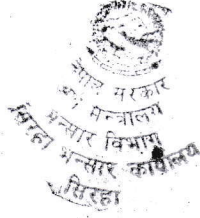 नेपाल सरकार
मन्त्रालय
भन्सार विभाग
भन्सार कार्यालय
सिरहा
सिरहा